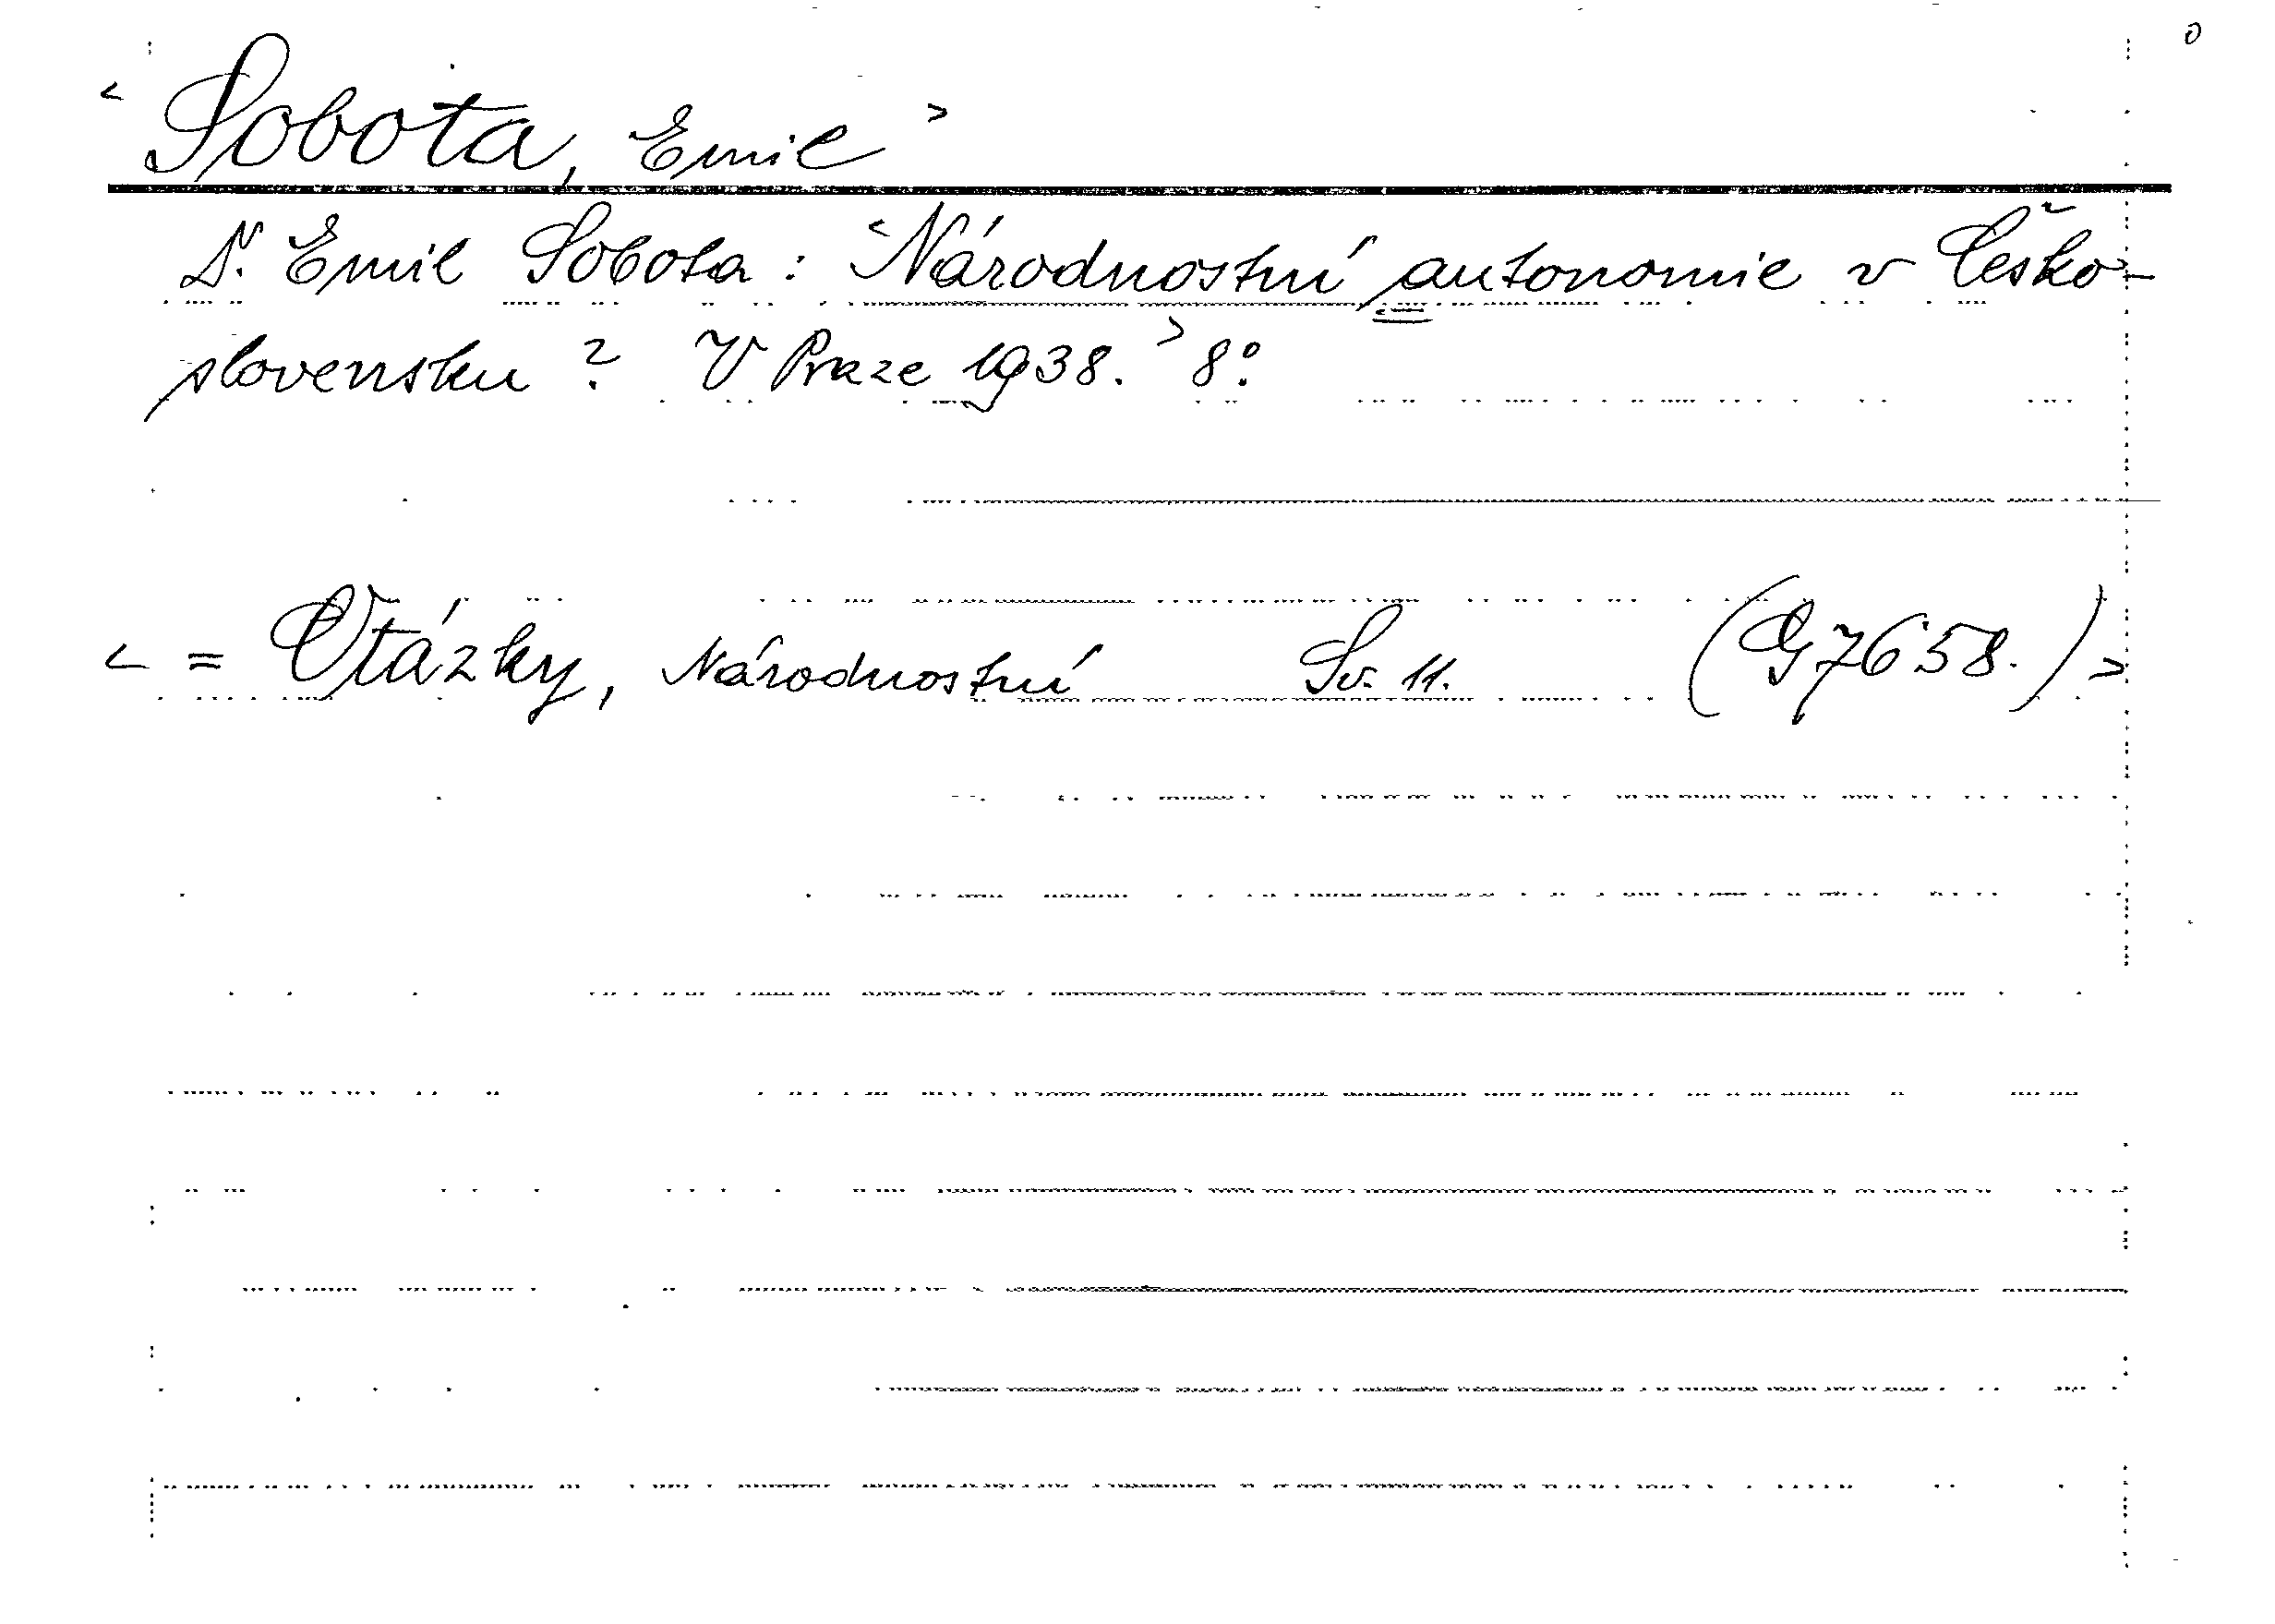 < Sobota, Emil >
Dr. Emil Sobota: <Národnostní autonomie v Česko-
slovensku? V Praze 1938.> 8°.
< = Otázky, Národnostní Sv. 11. (G 7658.) >